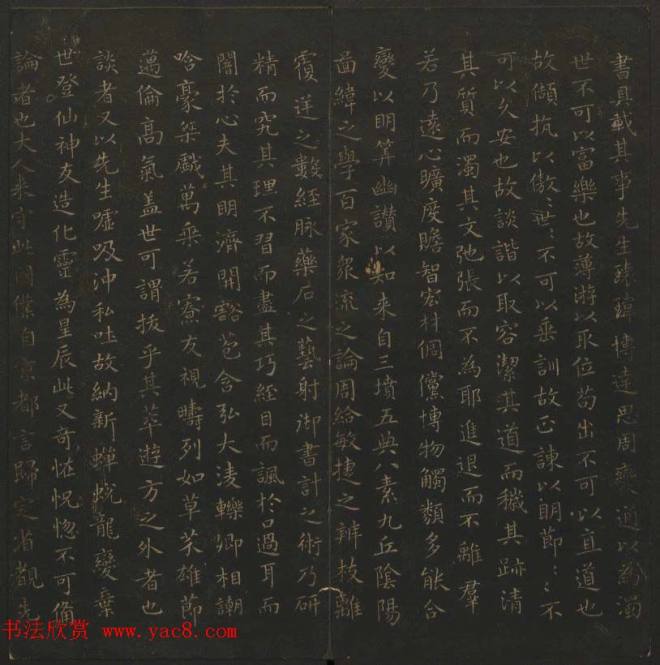 書具載其事先生瑋瑋博達思周變通以為濁
世不可以富樂也故薄游以取位苟出不可以直道也
故頡抗以傲:世:不可以垂訓故正諫以明節::不
可以久安也故談諧以取容潔其道而穢其跡清
其質而濁其文弛張而不為耶進退而不離羣
若乃遠心曠度贍智宏材倜儻博物觸類多能合
變以明筭幽讃以知来自三墳五典八素九丘陰陽
啚緯之學百家衆流之論周給敏捷之辨枝離
覆逆之數經脉藥石之藝射御書計之術乃研
精而究其理不習而盡其巧經目而諷於口過耳而
闇於心夫其明濟開豁苞含弘大淩轢卿相謿
哈豪桀戲萬乗若寮友視疇列如草芥雄節
邁倫髙氣盖世可謂拔乎其萃遊方之外者也
談者又以先生噓吸沖和吐故納新蟬蛻龍變棄
世登仙神友造化靈為星辰此又奇恠怳惚不可俻
論者也大人来守此國僕自京都言歸定省覩先
书法欣赏 http://www.yac8.com